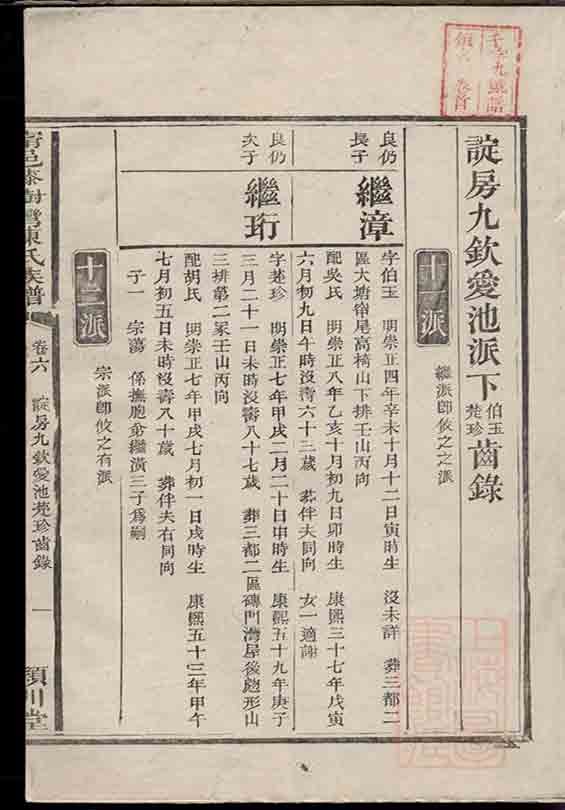 千字九號譜
錠房九欽愛池派下 伯玉 楚珍 齒錄
十一派
繼派即攸之之派
良仍長子
繼漳
字伯玉 明崇正四年辛未十月十二日寅時生 沒未詳 葬三都二
區大塘帘尾高椅山下排壬山丙向
配吳氏 明崇正八年乙亥十月初九日卯時生 康熙三十七年戊寅
六月初九日午時沒壽六十三歲 葬伴夫同向 女一適謝
良仍次子
繼珩
字楚珍 明崇正七年甲戌二月二十日申時生 康熙五十九年庚子
三月二十一日未時沒壽八十七歲 葬三都二區磚門灣屋後 形山
三排第二冢壬山丙向
配胡氏 明崇正七年甲戌七月初一日戌時生 康熙五十三年甲午
七月初五日未時沒壽八十歲 葬伴夫右同向
子一 宗蕩 係撫胞弟繼潢三子為嗣
十二派
宗派即攸之有派
甯邑漆樹灣陳氏族譜
卷六
錠房九欽愛池楚珍齒錄
一
潁川堂